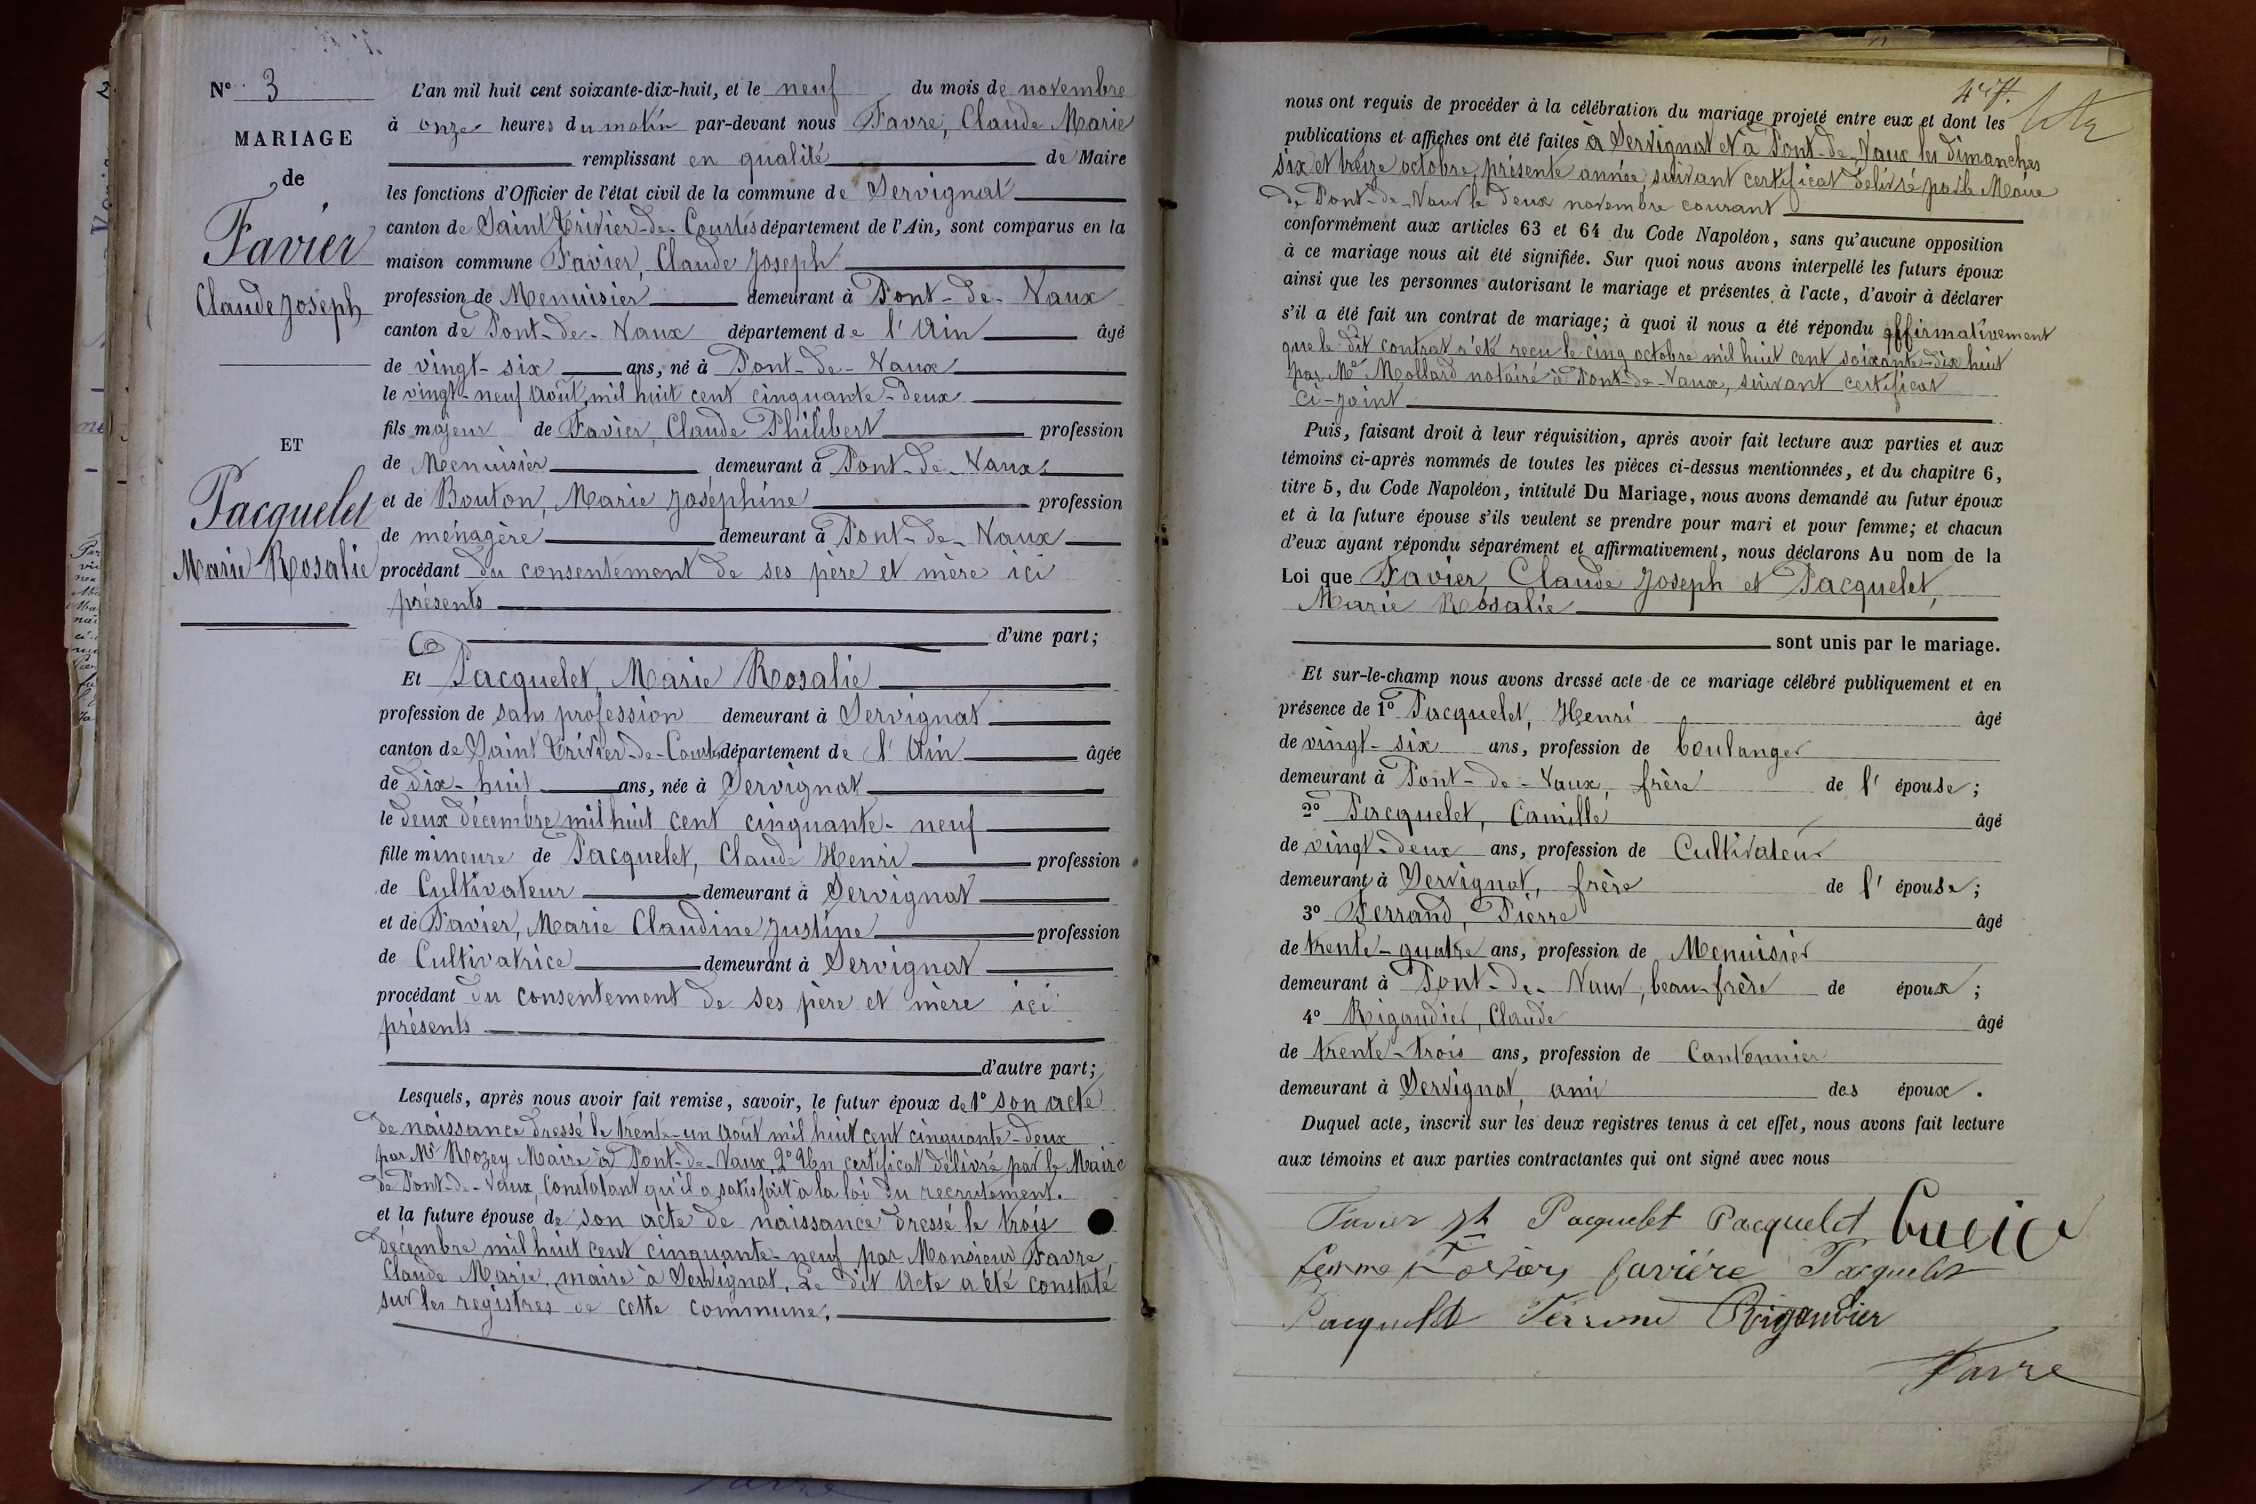 N° 3
MARIAGE
de
Favier
Claude Joseph
ET
Pacquelet
Marie Rosalie
L'an mil huit cent soixante-dix-huit, et le neuf du mois de novembre
à onze heures du matin par-devant nous Favre, Claude Marie
remplissant en qualité de Maire
les fonctions d'Officier de l'état civil de la commune de Servignat
canton de Saint Trivier-de-Courtes département de l'Ain, sont comparus en la
maison commune Favier, Claude Joseph
profession de Menuisier demeurant à Pont-de-Vaux
canton de Pont-de-Vaux département de l'Ain âgé
de vingt-six ans, né à Pont-de-Vaux
le vingt-neuf Août, mil huit cent cinquante-deux
fils majeur de Favier, Claude Philibert profession
de Menuisier demeurant à Pont-de-Vaux
et de Bouton, Marie Joséphine profession
de ménagère demeurant à Pont-de-Vaux
procédant du consentement de ses père et mère ici
présents
d'une part;
Et Pacquelet, Marie Rosalie
profession de sans profession demeurant à Servignat
canton de Saint Trivier-de-Courtes département de l'Ain âgée
de dix-huit ans, née à Servignat
le deux décembre mil huit cent cinquante-neuf
fille mineure de Pacquelet, Claude Henri profession
de Cultivateur demeurant à Servignat
et de Favier, Marie Claudine Justine profession
de Cultivatrice demeurant à Servignat
procédant du consentement de ses père et mère ici
présents
d'autre part;
Lesquels, après nous avoir fait remise, savoir, le futur époux de 1° son acte
de naissance dressé le trente-un Août mil huit cent cinquante-deux
par Mr Rozey Maire à Pont-de-Vaux, 2° Un certificat délivré par le Maire
de Pont-de-Vaux, constatant qu'il a satisfait à la loi du recrutement.
et la future épouse de son acte de naissance dressé le trois
décembre mil huit cent cinquante-neuf par Monsieur Favre
Claude Marie, maire à Servignat. Le dit Acte a été constaté
sur les registres de cette commune.
nous ont requis de procéder à la célébration du mariage projeté entre eux et dont les
publications et affiches ont été faites à Servignat et à Pont-de-Vaux les dimanches
six et treize octobre, présente année, suivant certificat délivré par le Maire
de Pont-de-Vaux le deux novembre courant
conformément aux articles 63 et 64 du Code Napoléon, sans qu'aucune opposition
à ce mariage nous ait été signifiée. Sur quoi nous avons interpellé les futurs époux
ainsi que les personnes autorisant le mariage et présentes à l'acte, d'avoir à déclarer
s'il a été fait un contrat de mariage; à quoi il nous a été répondu affirmativement
que le dit contrat a été reçu le cinq octobre mil huit cent soixante-dix huit
par Me Mollard notaire à Pont-de-Vaux, suivant certificat
ci-joint
Puis, faisant droit à leur réquisition, après avoir fait lecture aux parties et aux
témoins ci-après nommés de toutes les pièces ci-dessus mentionnées, et du chapitre 6,
titre 5, du Code Napoléon, intitulé Du Mariage, nous avons demandé au futur époux
et à la future épouse s'ils veulent se prendre pour mari et pour femme; et chacun
d'eux ayant répondu séparément et affirmativement, nous déclarons Au nom de la
Loi que Favier, Claude Joseph et Pacquelet,
Marie Rosalie
sont unis par le mariage.
Et sur-le-champ nous avons dressé acte de ce mariage célébré publiquement et en
présence de 1° Pacquelet, Henri âgé
de vingt-six ans, profession de boulanger
demeurant à Pont-de-Vaux, frère de l'épouse;
2° Pacquelet, Camille âgé
de vingt-deux ans, profession de Cultivateur
demeurant à Servignat, frère de l'épouse;
3° Ferrand, Pierre âgé
de trente-quatre ans, profession de Menuisier
demeurant à Pont-de-Vaux, beau-frère de époux;
4° Rigaudier, Claude âgé
de trente-trois ans, profession de Cantonnier
demeurant à Servignat, ami des époux.
Duquel acte, inscrit sur les deux registres tenus à cet effet, nous avons fait lecture
aux témoins et aux parties contractantes qui ont signé avec nous
Favier Pacquelet Pacquelet
femme Pacquelet
Pacquelet Rigaudier
Favre